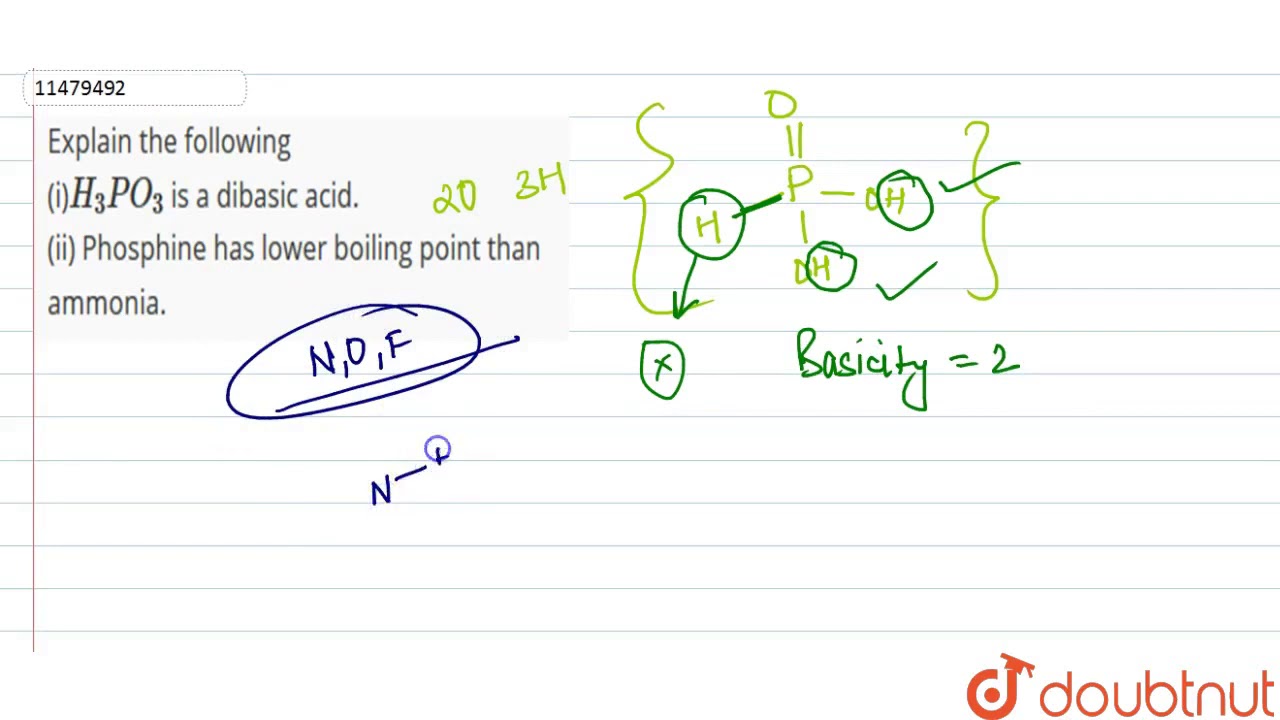 11479492
Explain the following
(i) H₃PO₃ is a dibasic acid.
(ii) Phosphine has lower boiling point than
ammonia.
20 3H
O
P
H
OH
OH
x
Basicity = 2
N, O, F
N
doubtnut